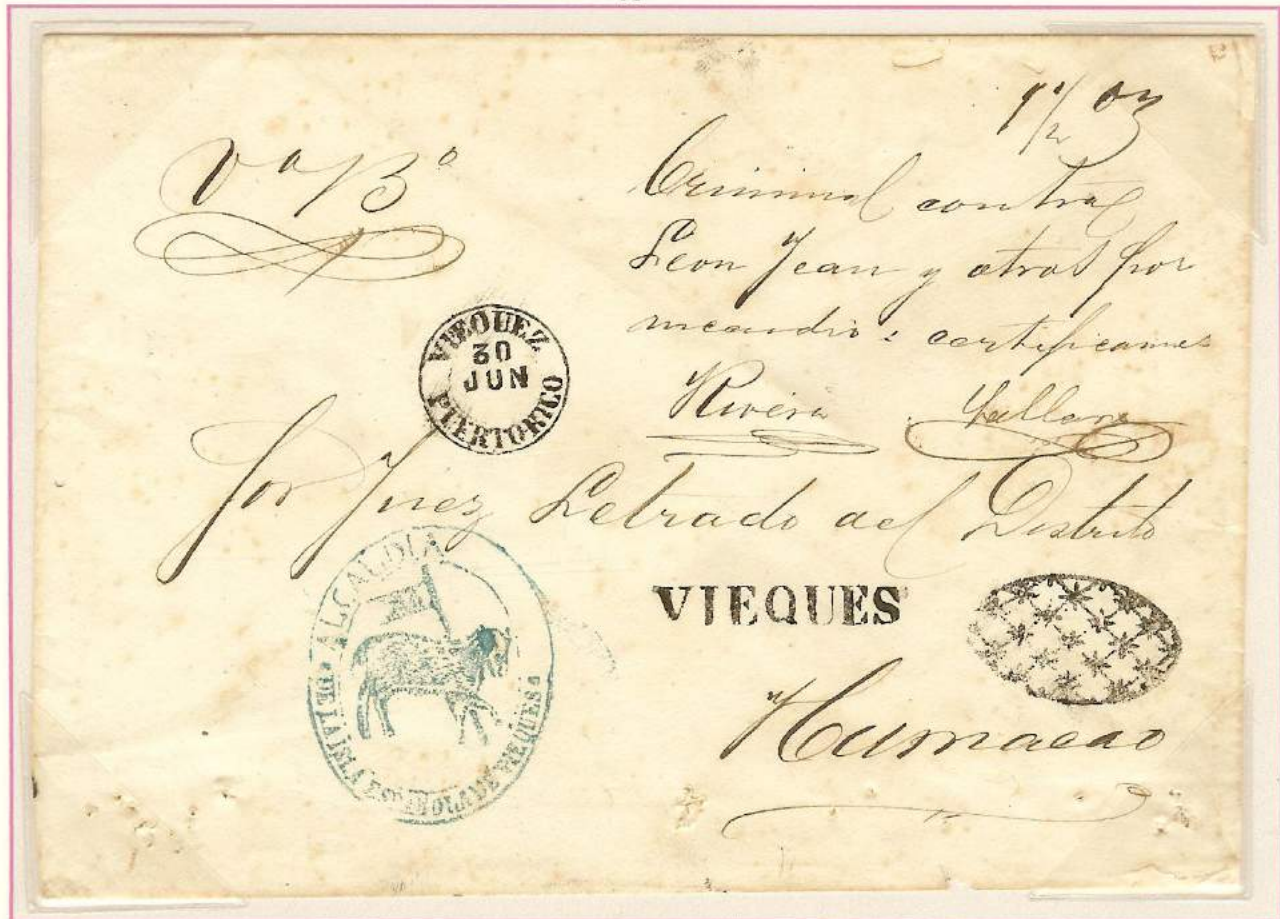 1 1/2 oz
Vº Bº
Criminal contra
Leon Jean y otros por
incendio: certificamos
Rivera
VIEQUEZ
30
JUN
PUERTO RICO
Sor Juez Letrado del Distrito
ALCALDIA
DE LA ISLA ESPAÑOLA DE BIEQUES
VIEQUES
Humacao